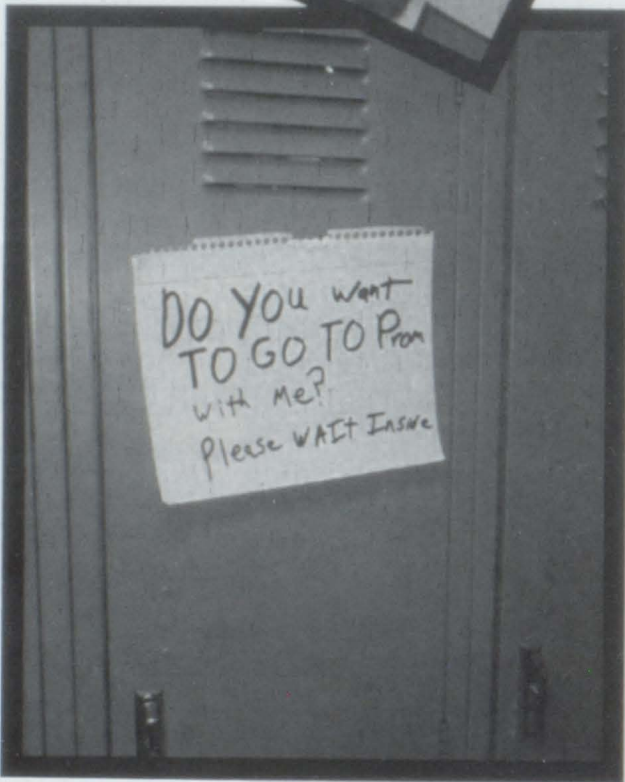 DO YOU want
TO GO TO Prom
with Me?
Please WAIt Inside